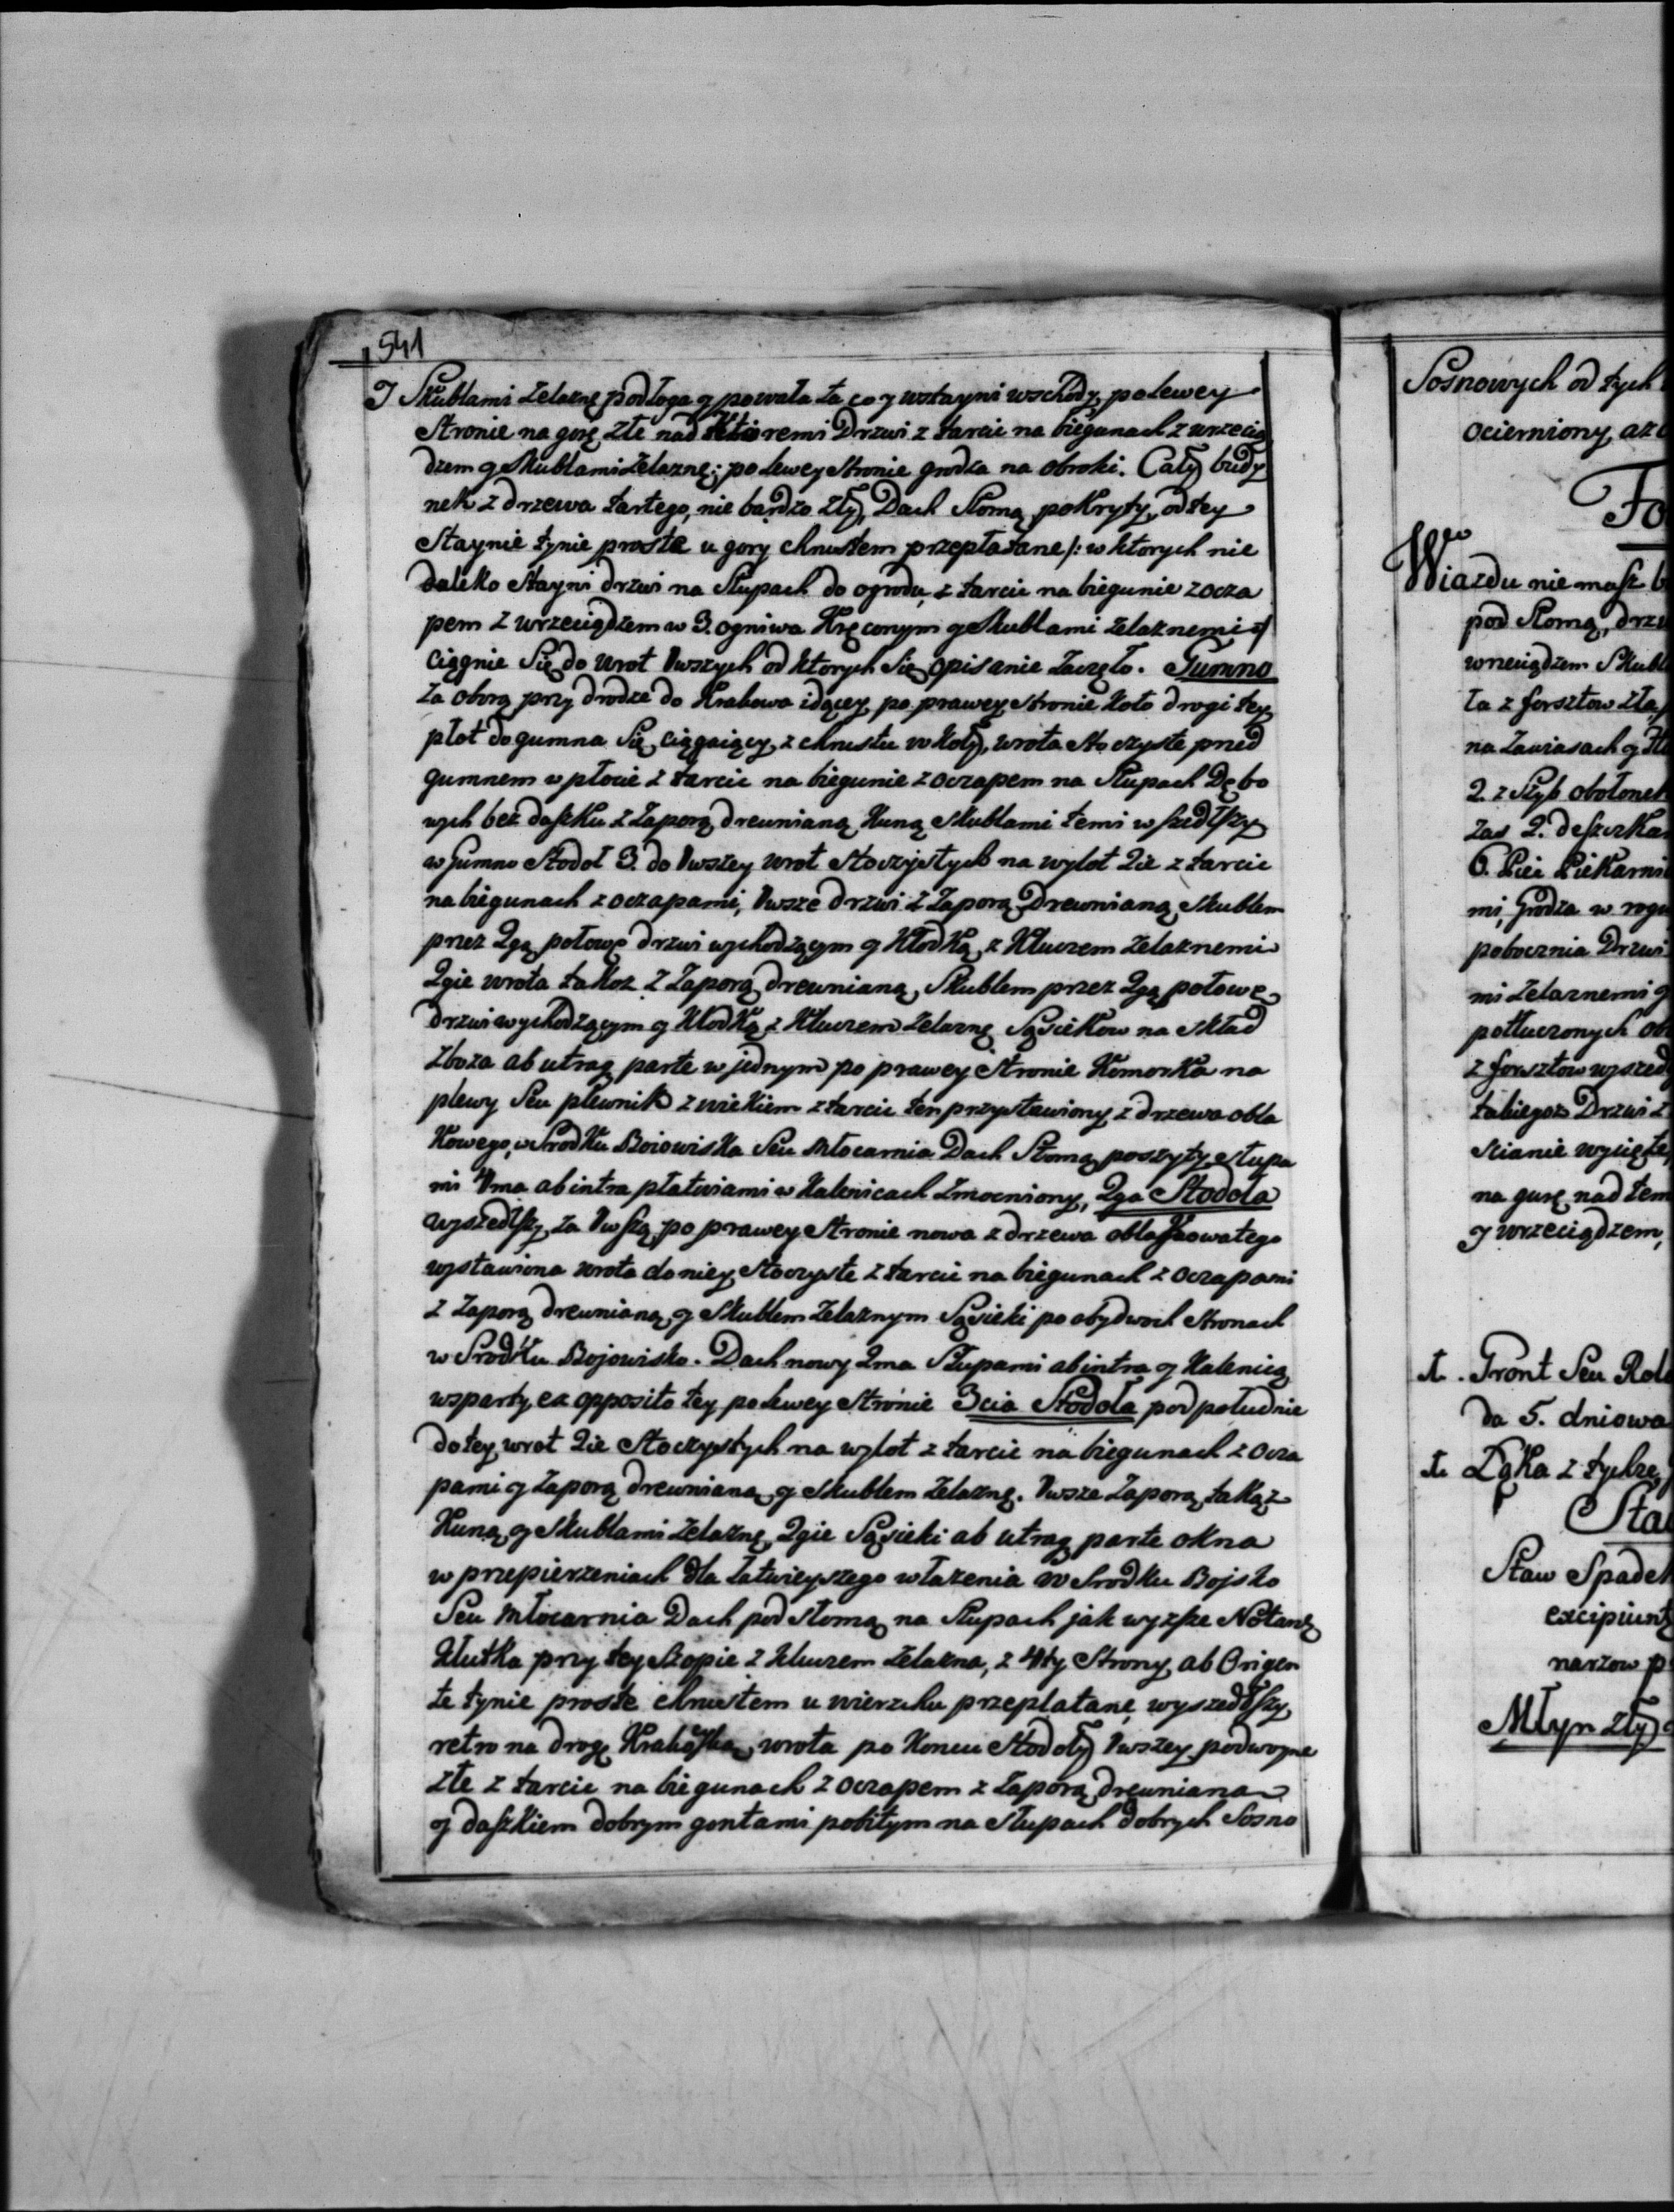 541
J Skublami Zelaznę podłoga y powała ta co y wstayni wschody, po lewey
Stronie na gorę złe nad Ktoremi Drzwi z tarcic na biegunach z wrzecią
dzem y Skublami Zelaznę; po lewey stronie grodza na obroki. Cały budy
nek z drzewa tartego, nie bardzo zły, Dach Słomą pokryty, od tey
Staynie tynie proste u gory chrustem przepłatane /: w ktorych nie
daleko Stayni drzwi na Słupach do ogrodu z tarcic na biegunie z ocza
pem z wrzeciądzem w 3. ogniwa Kręconym y Skublami zelaznemi :/
ciągnie Się do wrot Iwszych od ktorych Się opisanie Zaczęło. Gumno
Za oborą przy drodze do Krakowa idącey, po prawey stronie koło drogi tey
płot do gumna Się ciągaiący, z chrustu w Koły, wrota stoczyste przed
gumnem w płocie z tarcic na biegunie z oczapem na Słupach Dębo
wych bez daszku z Zaporą drewnianą Kuną skublami temi wszedłszy
w Gumno Stodoł 3. do Iwszey wrot stoczystych na wylot 2ie z tarcic
na biegunach z oczapami, Iwsze drzwi z Zaporą Drewnianą, skublem
przez 2gą połowę drzwi wychodzącym y Kłodką, z Kluczem Zelaznemi
2gie wrota takoz z Zaporą drewnianą, Skublem przez 2gą połowę
drzwi wychodzącym y Kłodką z Kluczem Zelaznę Sąsiekow na skład
zboza ab utraq parte w jednym po prawey stronie Komorka na
plewy Seu plewnik z wiekiem z tarcic ten przystawiony z drzewa obla
kowego, w Srodku Boiowiska Seu Młocarnia Dach Słomą poszyty słupa
mi 4ma ab intra płatwiami w Kalenicach Zmocniony, 2ga Stodoła
wyszedłszy, za Iwszą, po prawey stronie nowa z drzewa oblakowatego
wystawiona wrota do niey stoczyste z tarcic na biegunach z oczapami
z Zaporą drewnianą y skublem zelaznym Sąsieki po obydwoch stronach
w Srodku Bojowisko. Dach nowy 2ma Słupami ab intra y Kalenicą
wsparty, ex opposito tey po lewey stronie 3cia Stodoła pod południe
do tey wrot 2ie stoczystych na wylot z tarcic na biegunach z ocza
pami y Zaporą drewnianą y skublem Zelaznę. Iwsze Zaporą taką z
Kuną y skublami zelaznę, 2gie Sąsieki ab utraq parte okna
w przepierzeniach dla łatwieyszego włazenia w Srodku Bojsko
Seu Młocarnia Dach pod słomą na Słupach jak wyzsze Notand
Klutka przy tey szopie z Kluczem Zelazna, z 4ty Strony ab Origen
te tynie proste chrustem u wierzchu przeplatane, wyszedłszy,
retro na drogę wrota po Koncu Stodoły Iwszey podwoyne
złe z tarcic na biegunach z oczapem z Zaporą drewniana
y daszkiem dobrym gontami pobitym na słupach dobrych Sosno
Sosnowych od tych
ocierniony, az
Fo
Wiazdu nie masz b
pod Słomą, drzw
wrzeciądzem Skubl
ła z forsztow zła,
na Zawiasach y
2. z Szyb obołonek
zas 2. deszczka
6. Piec Piekarni
mi, Grodza w rogu
pobocznia Drzwi
mi Zelaznemi y
potłuczonych
z forsztow wyszed
takiegoz Drzwi z
scianie wycięte
na gurę nad tem
y wrzeciądzem,
Gront Seu Rol
da 5. dniowa
Łąka z tychze
Sta
Staw Spadek
excipiunt
narzow p
Młyn zły